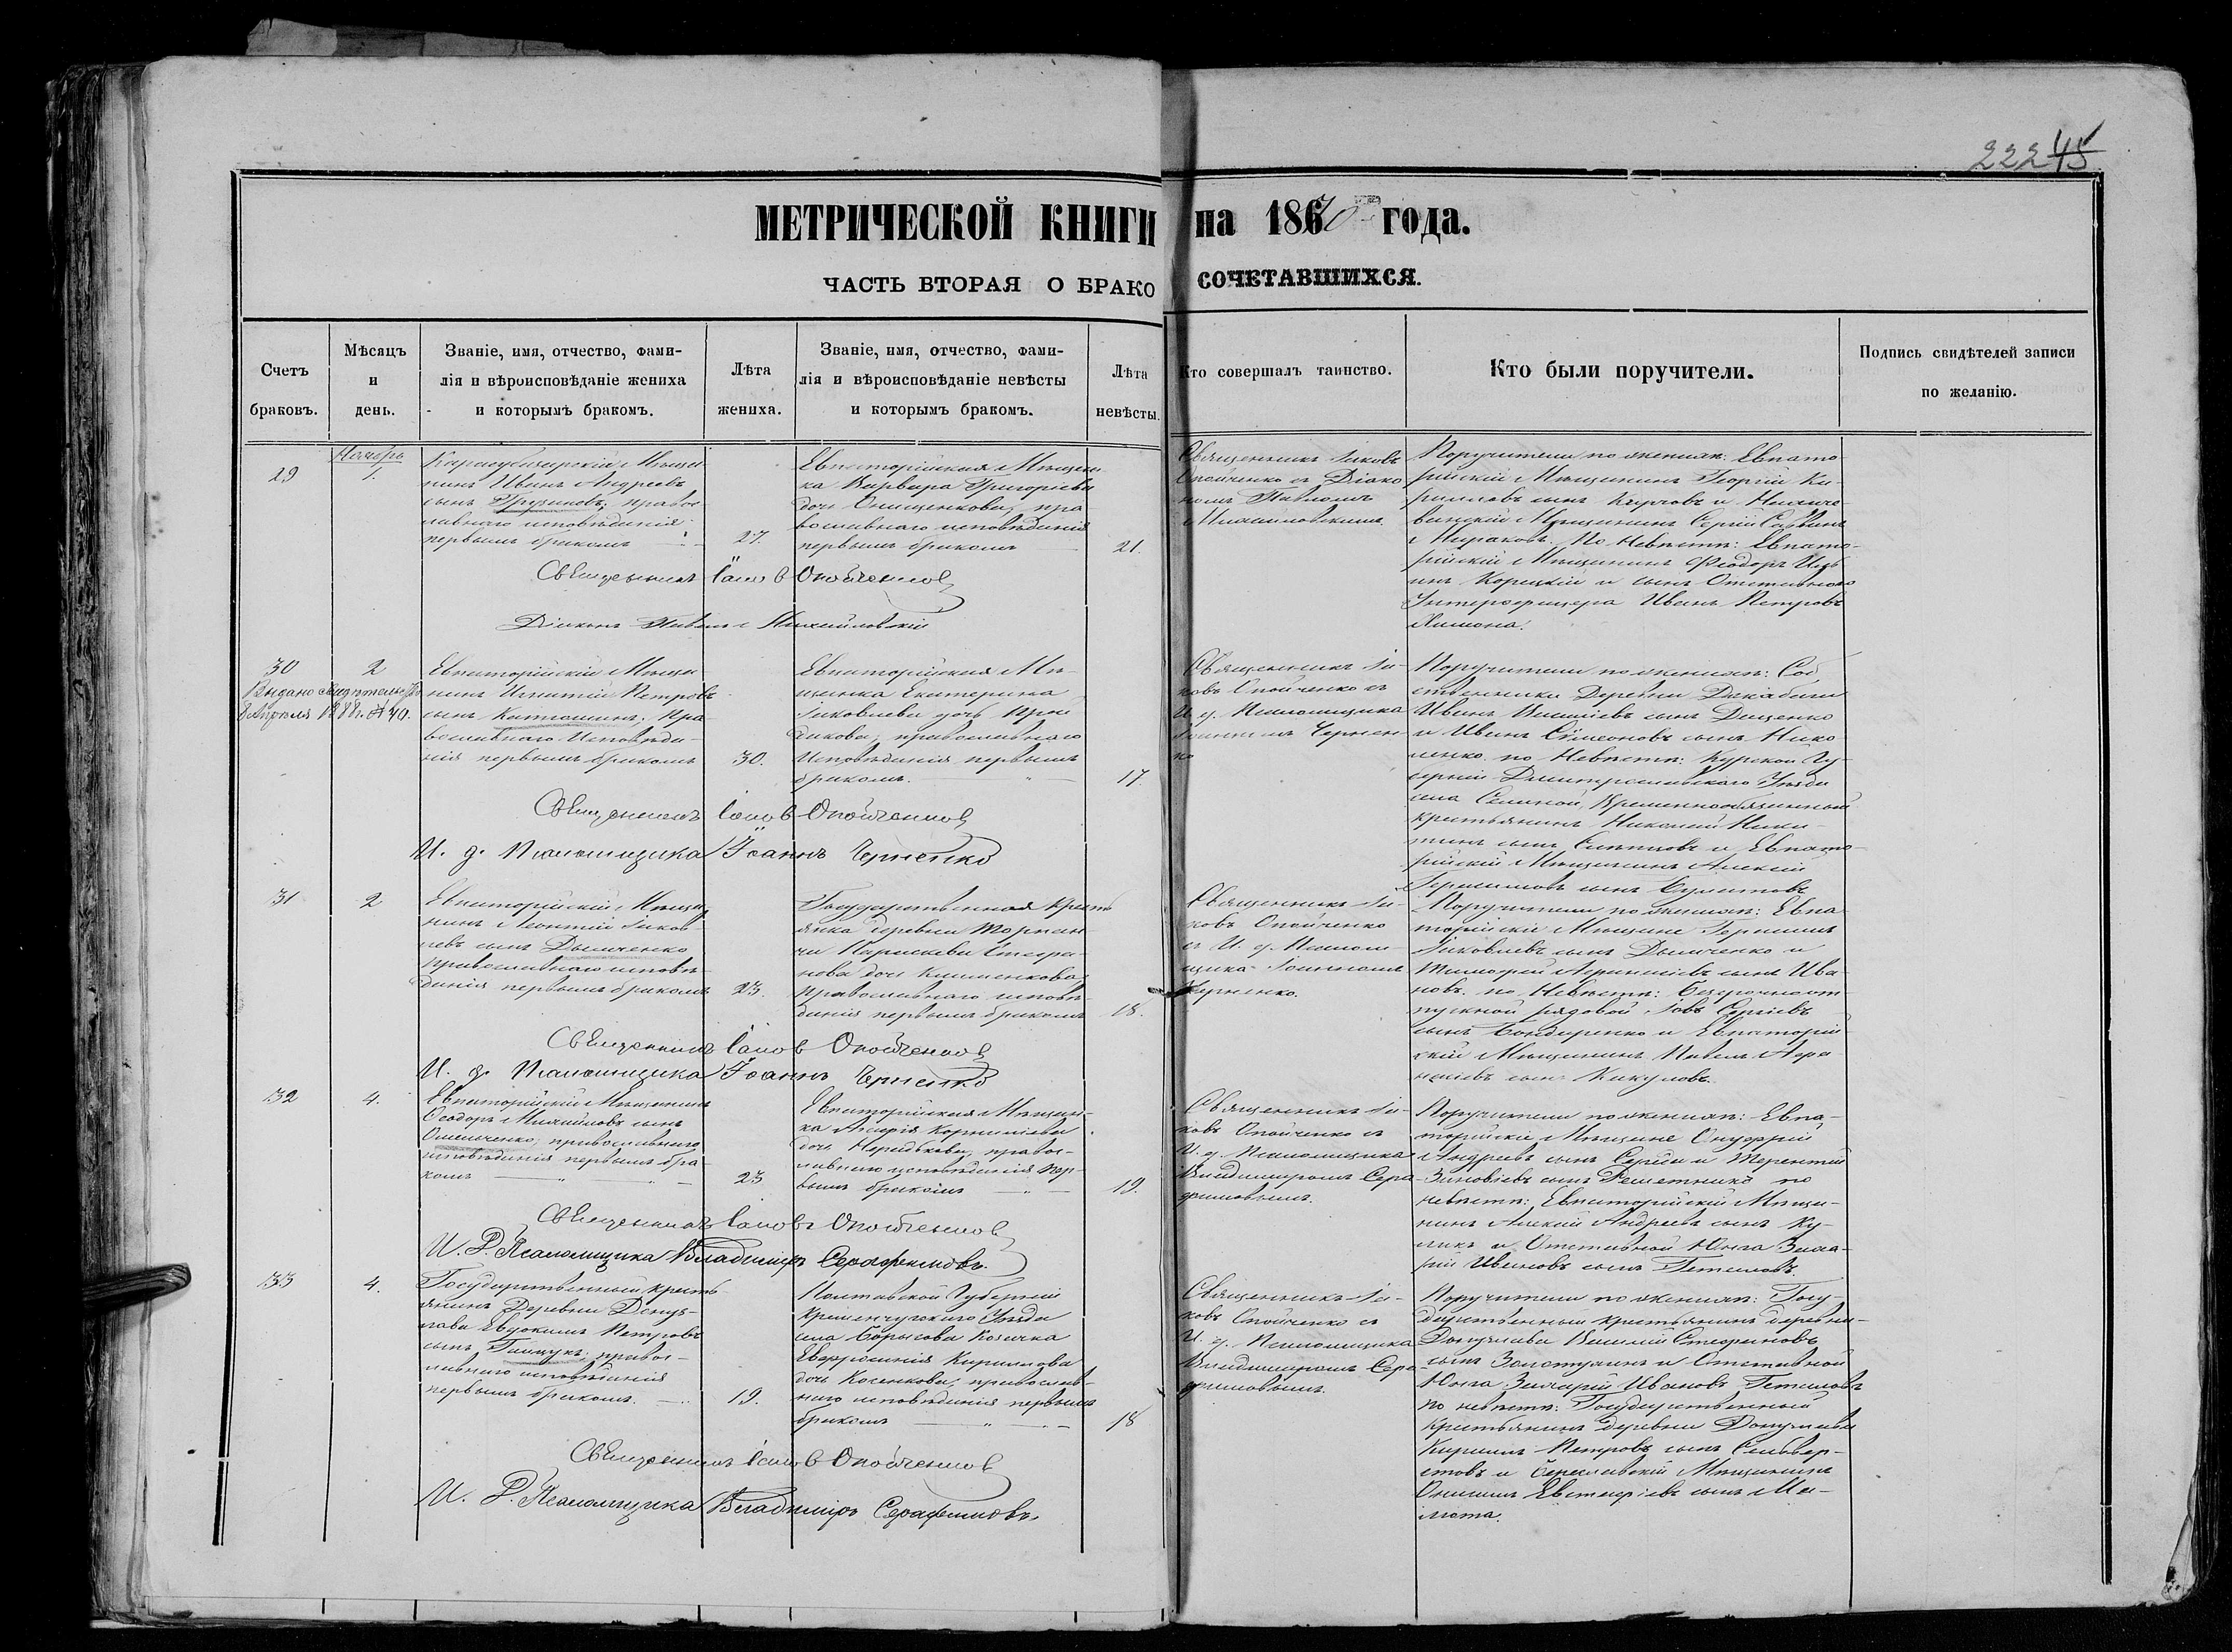 222 45
МЕТРИЧЕСКОЙ КНИГИ на 1870 года.
ЧАСТЬ ВТОРАЯ О БРАКОСОЧЕТАВШИХСЯ.
Счетъ браковъ.
Мѣсяцъ и день.
Званіе, имя, отчество, фами-
лія и вѣроисповѣданіе жениха
и которымъ бракомъ.
Лѣта жениха.
Званіе, имя, отчество, фами-
лія и вѣроисповѣданіе невѣсты
и которымъ бракомъ.
Лѣта невѣсты.
Кто совершалъ таинство.
Кто были поручители.
Подпись свидѣтелей записи
по желанію.
29
Ноябрь
1.
Карасубазарскій Мѣща-
нинъ Иванъ Андреевъ
сынъ Грузиновъ; правос-
лавнаго исповѣданія
первымъ бракомъ
27.
Евпаторійская Мѣщан-
ка Варвара Григоріева
дочь Онищенкова, пра-
вославнаго исповѣданія
первымъ бракомъ
21.
Священникъ Іаковъ
Опойченко съ Діако-
номъ Павломъ
Михайловскимъ
Поручители по женихѣ: Евпато-
рійскій Мѣщанинъ Георгій Ки-
рилловъ сынъ
Мѣщанинъ Сергій
По невѣстѣ: Евпато-
рійскій Мѣщанинъ Ѳеодоръ
Корецкій и сынъ Отставнаго
Унтерофицера Иванъ Петровъ
Священникъ Іаковъ Опойченко
Діаконъ Павелъ Михайловскій
30
2
Выдано свидѣтельство
8 Апрѣля 1888 г. № 40.
Евпаторійскій Мѣща-
нинъ Игнатій Петровъ
сынъ Катюшинъ; Пра-
вославнаго Исповѣда-
нія первымъ бракомъ
30.
Евпаторійская Мѣ-
щанка Екатерина
Іаковлева дочь
православнаго
Исповѣданія первымъ
бракомъ.
17.
Священникъ Іа-
ковъ Опойченко съ
И. д. Псаломщика
Іоанномъ Чернен-
ко
Поручители по женихѣ: Соб-
ственники Деревни
Иванъ сынъ Даценко
и Иванъ Сѵмеоновъ сынъ Нико-
ленко. по Невѣстѣ: Курской Гу-
берніи Дмитріевскаго Уѣзда
села Временнообязанный
крестьянинъ Николай Ники-
тинъ сынъ и Евпато-
рійскій Мѣщанинъ Алексій
Герасимовъ сынъ
Священникъ Іаковъ Опойченко
И. д. Псаломщика Іоаннъ Черненко
31
2
Евпаторійскій Мѣща-
нинъ Леонтій Іаков-
левъ сынъ Дымченко
православнаго исповѣ-
данія первымъ бракомъ
23.
Государственная кресть-
янка деревни
Параскева Стефа-
нова дочь Клименкова
православнаго исповѣ-
данія первымъ бракомъ
18.
Священникъ Іа-
ковъ Опойченко
съ И. д. Псалом-
щика Іоанномъ
Черненко.
Поручители по женихѣ: Евпа-
торійскіе Мѣщане Герасимъ
Іаковлевъ сынъ Дымченко и
Тимофей сынъ Ива-
новъ. по Невѣстѣ: Безсрочноот-
пускной рядовой Іовъ Сергіевъ
сынъ Бондаренко и Евпаторій-
скій Мѣщанинъ Павелъ
сынъ Кикуловъ.
Священникъ Іаковъ Опойченко
И. д. Псаломщика Іоаннъ Черненко
32
4.
Евпаторійскій Мѣщанинъ
Ѳеодоръ Михайловъ сынъ
Омельченко, православнаго
исповѣданія первымъ бра-
комъ
23
Евпаторійская Мѣщан-
ка Марія Корниліева
дочь правос-
лавнаго исповѣданія пер-
вымъ бракомъ
19.
Священникъ Іа-
ковъ Опойченко съ
И. д. Псаломщика
Владимиромъ Сера-
фимовымъ.
Поручители по женихѣ: Евпа-
торійскіе Мѣщане Онуфрій
Андреевъ сынъ и Терентій
Зиновіевъ сынъ Решетнико по
невѣстѣ: Евпаторійскій Мѣща-
нинъ Алексій Андреевъ сынъ Ку-
и Отставной Юнга Заха-
рій Ивановъ сынъ Гетмановъ.
Священникъ Іаковъ Опойченко
И. Д. Псаломщика Владимиръ Серафимовъ.
33
4.
Государственный кресть-
янинъ Деревни Дону-
лава Евдокимъ Петровъ
сынъ правос-
лавнаго исповѣданія
первымъ бракомъ.
19.
Полтавской Губерніи
Кременчугскаго Уѣзда
села Борисова Козачка
Евфросинія Кириллова
дочь Косенкова, православ-
наго исповѣданія первымъ
бракомъ
18
Священникъ Іа-
ковъ Опойченко съ
И. д. Псаломщика
Владимиромъ Сера-
фимовымъ.
Поручители по женихѣ: Госу-
дарственный крестьянинъ деревни
Донулава Василій Стефановъ
сынъ и Отставной
Юнга Захарій Ивановъ Гетмановъ
по невѣстѣ: Государственный
крестьянинъ деревни Донулава
Кириллъ Петровъ сынъ Селивер-
стовъ и Бериславскій Мѣщанинъ
сынъ
Священникъ Іаковъ Опойченко
И. Д. Псаломщика Владимиръ Серафимовъ.